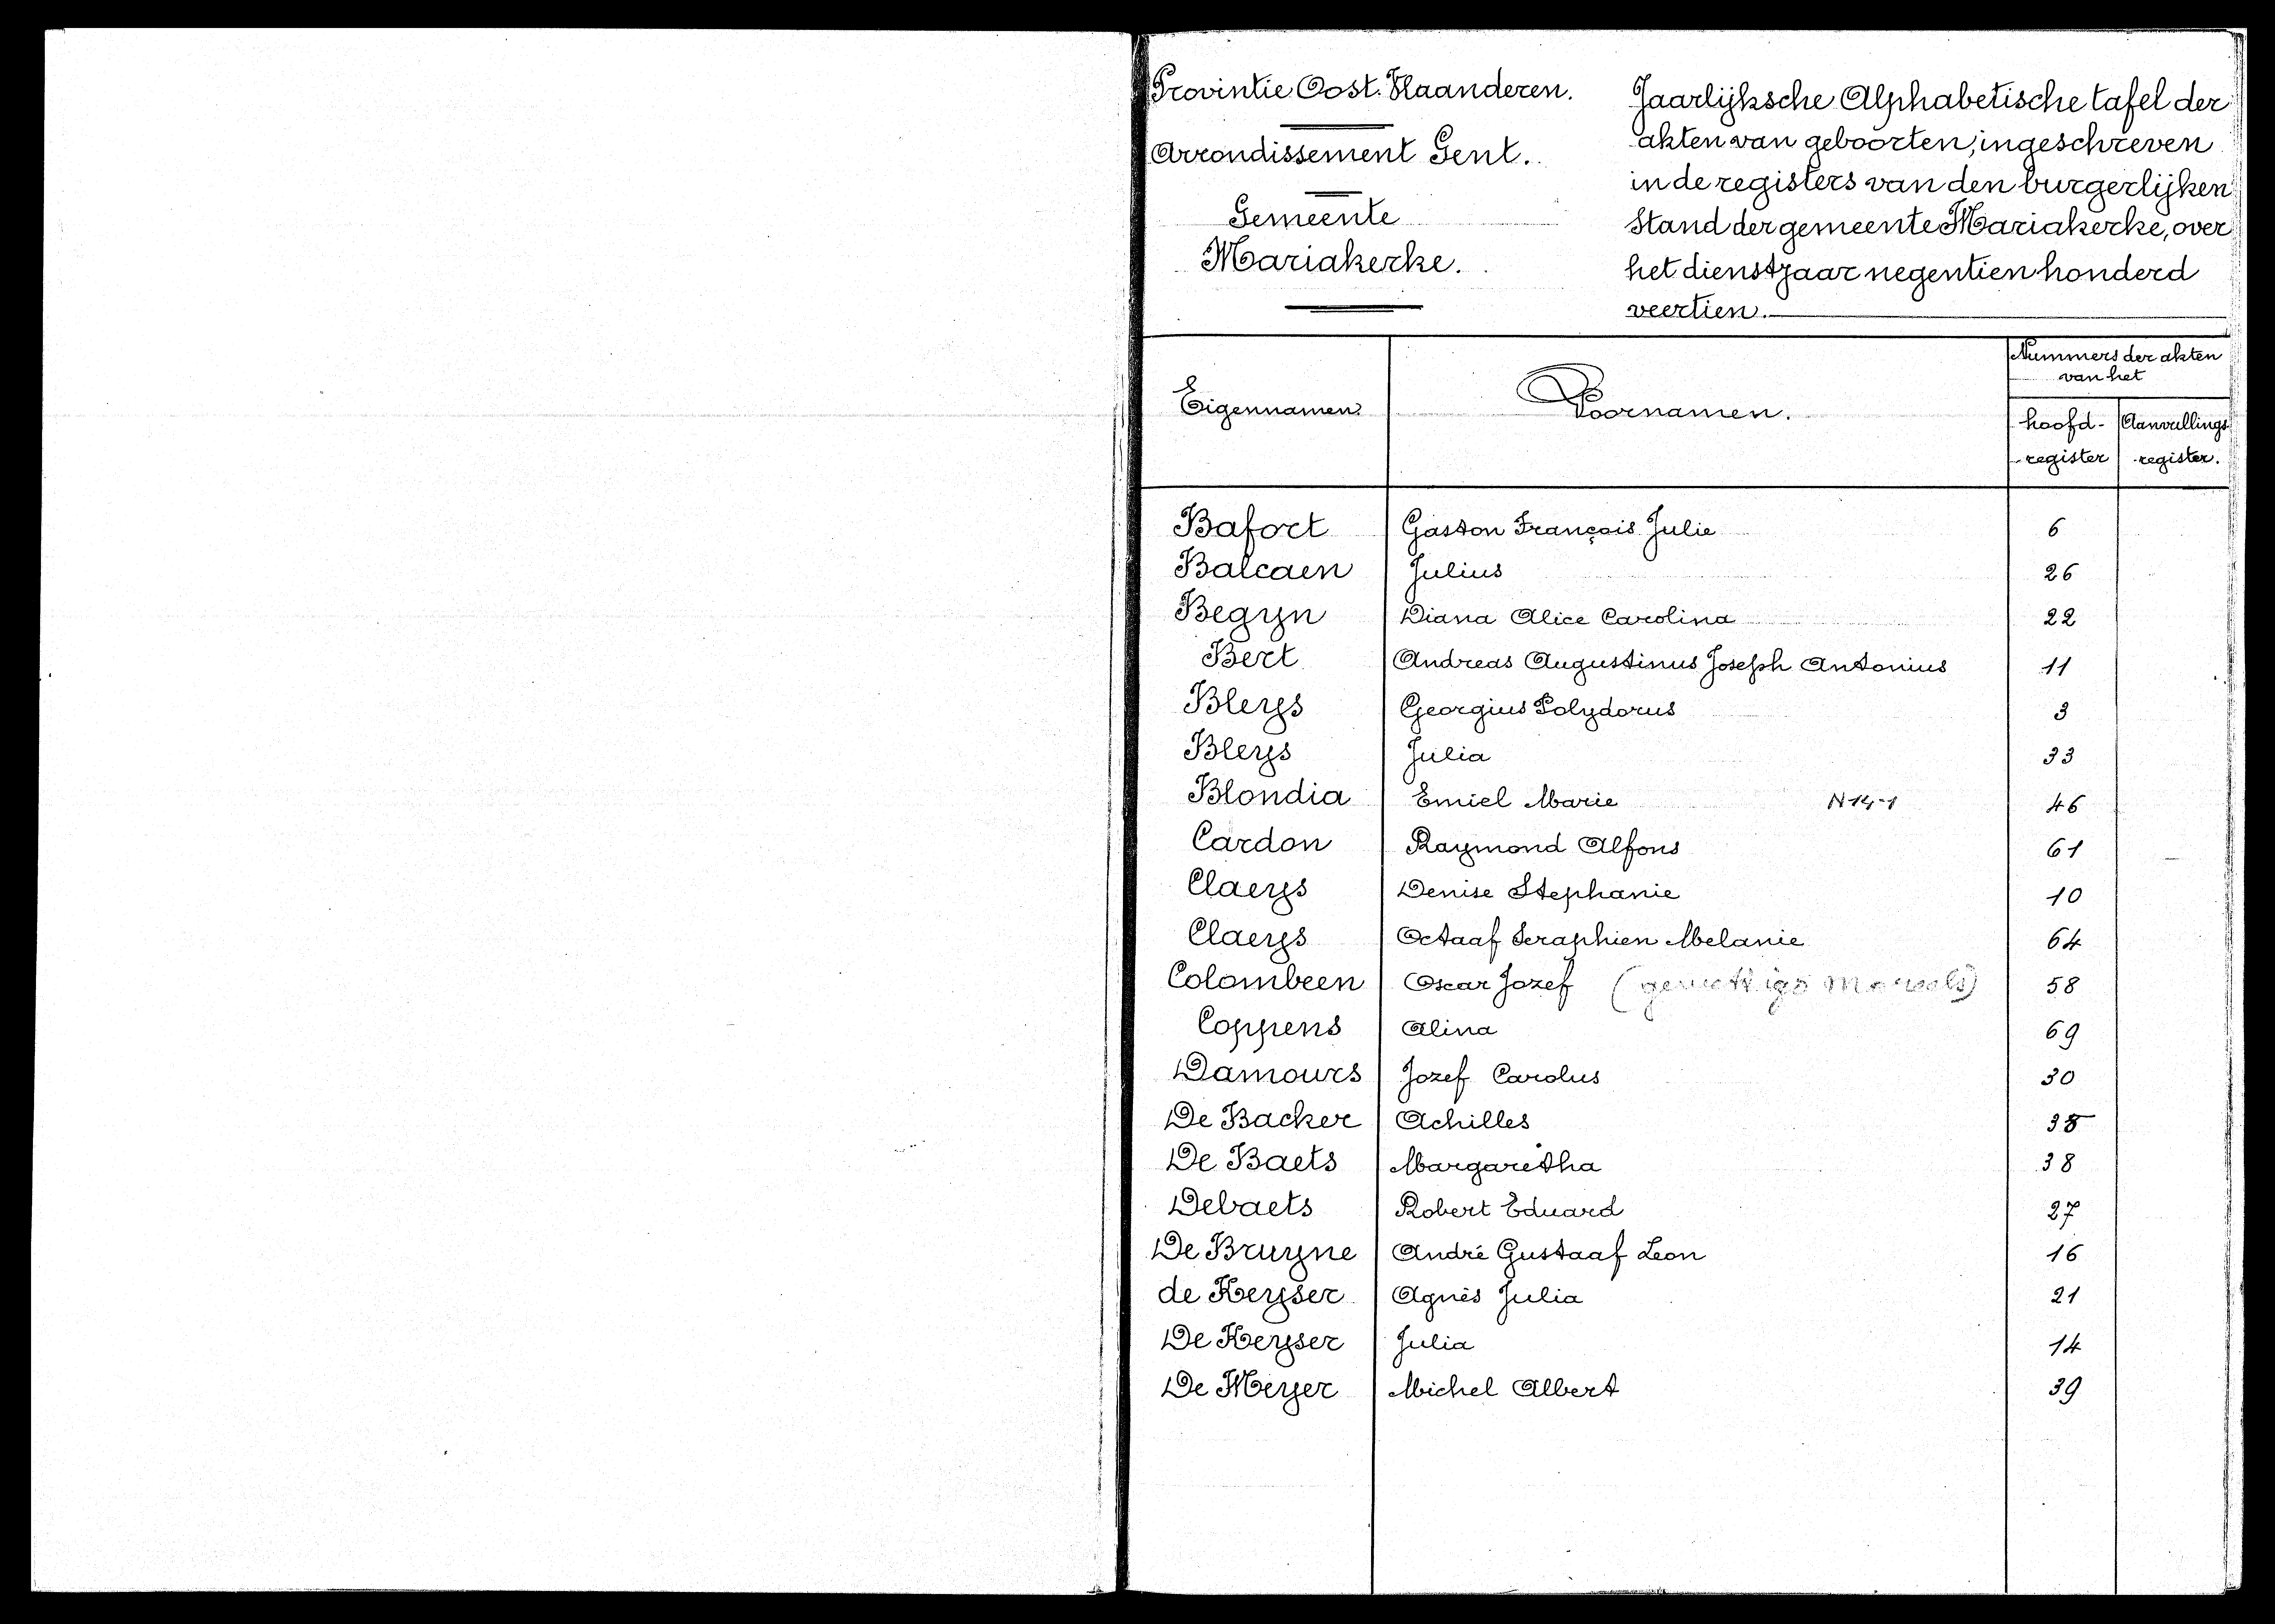 Provintie Oost-Vlaanderen.
Arrondissement Gent.
Gemeente
Mariakerke.
Jaarlijksche Alphabetische tafel der
akten van geboorten, ingeschreven
in de registers van den burgerlijken
Stand der gemeente Mariakerke, over
het dienstjaar negentien honderd
veertien.
Eigennamen. Voornamen. Nummers der akten
van het
hoofd- Aanvullings
register register.
Bafort Gaston François Julie 6
Balcaen Julius 26
Begyn Diana Alice Carolina 22
Bert Andreas Augustinus Joseph Antonius 11
Bleys Georgius Polydorus 3
Bleys Julia 33
Blondia Emiel Marie N14-1 46
Cardon Raymond Alfons 61
Claeys Denise Stephanie 10
Claeys Octaaf Seraphien Melanie 64
Colombeen Oscar Jozef 58
Coppens Alina 69
Damours Jozef Carolus 30
De Backer Achilles 35
De Baets Margaretha 38
Debaets Robert Eduard 27
De Bruyne André Gustaaf Leon 16
de Keyser Agnès Julia 21
De Keyser Julia 14
De Meyer Michel Albert 39